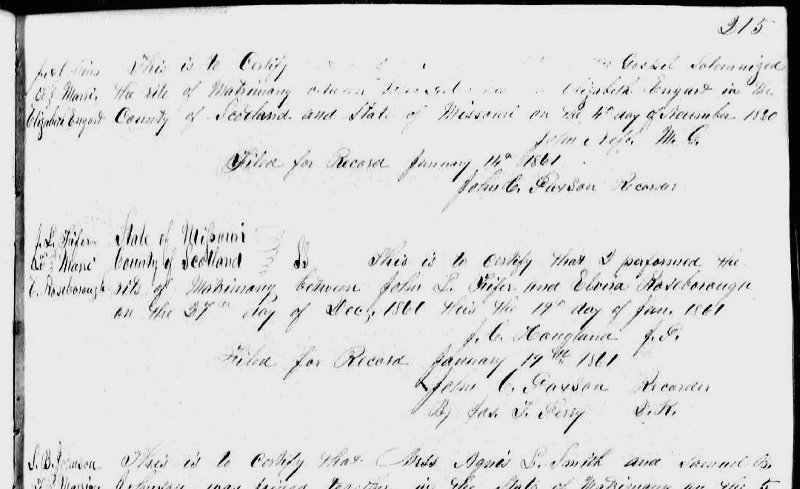 215
This is to Certify Gospel Solemnized
& Marri. the rite of Matrimony between Elizabeth Engart in the
Elizabeth Engart County of Scotland and State of Missouri on the 4th day of November 1860
John Neff M. G.
Filed for Record January 14th 1861
John C. Paxson Recorder
State of Missouri
County of Scotland SS This is to Certify that I performed the
E. Roseborough rite of Matrimony between John L. Fifer and Elvira Roseborough
on the 27th day of Dec, 1860 this the 19th day of Jan. 1861
J. C. Hougland J. P.
Filed for Record January 19th 1861
John C. Paxson Recorder
By Jas. T. Perry D. R.
S. B. Johnson This is to Certify that Miss Agnis L. Smith and Samuel B.
Johnson was joined together in the State of Matrimony on the 5